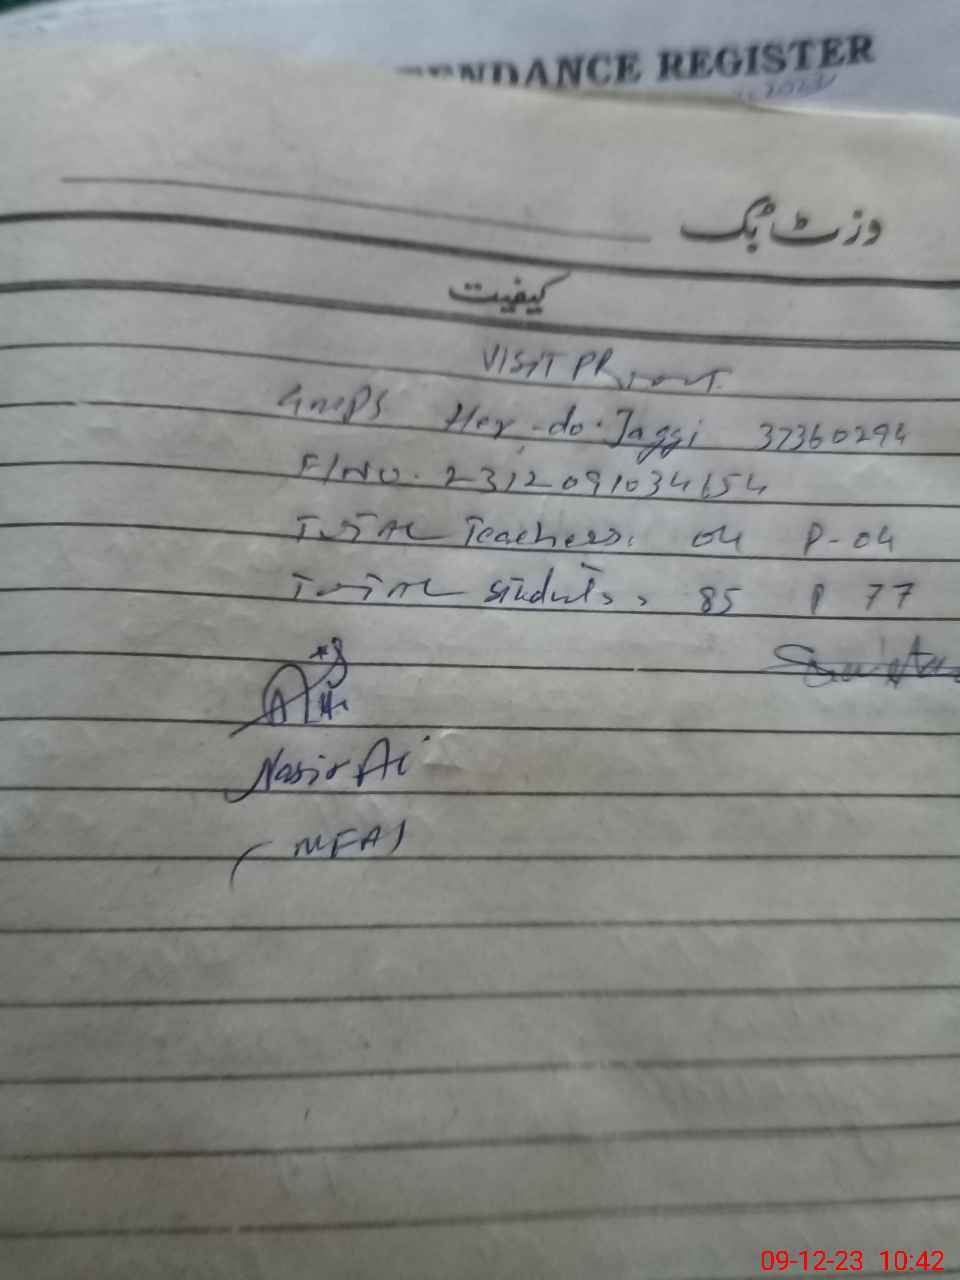 ENDANCE REGISTER
وزٹ بک
کیفیت
VISIT
GMPS Her-do-Jaggi 37360294
F/NO. 2312091034654
TOTAL Teachers. 04 P-04
TOTAL Students, 85 P 77
Nasir Ali
(MFA)
09-12-23 10:42